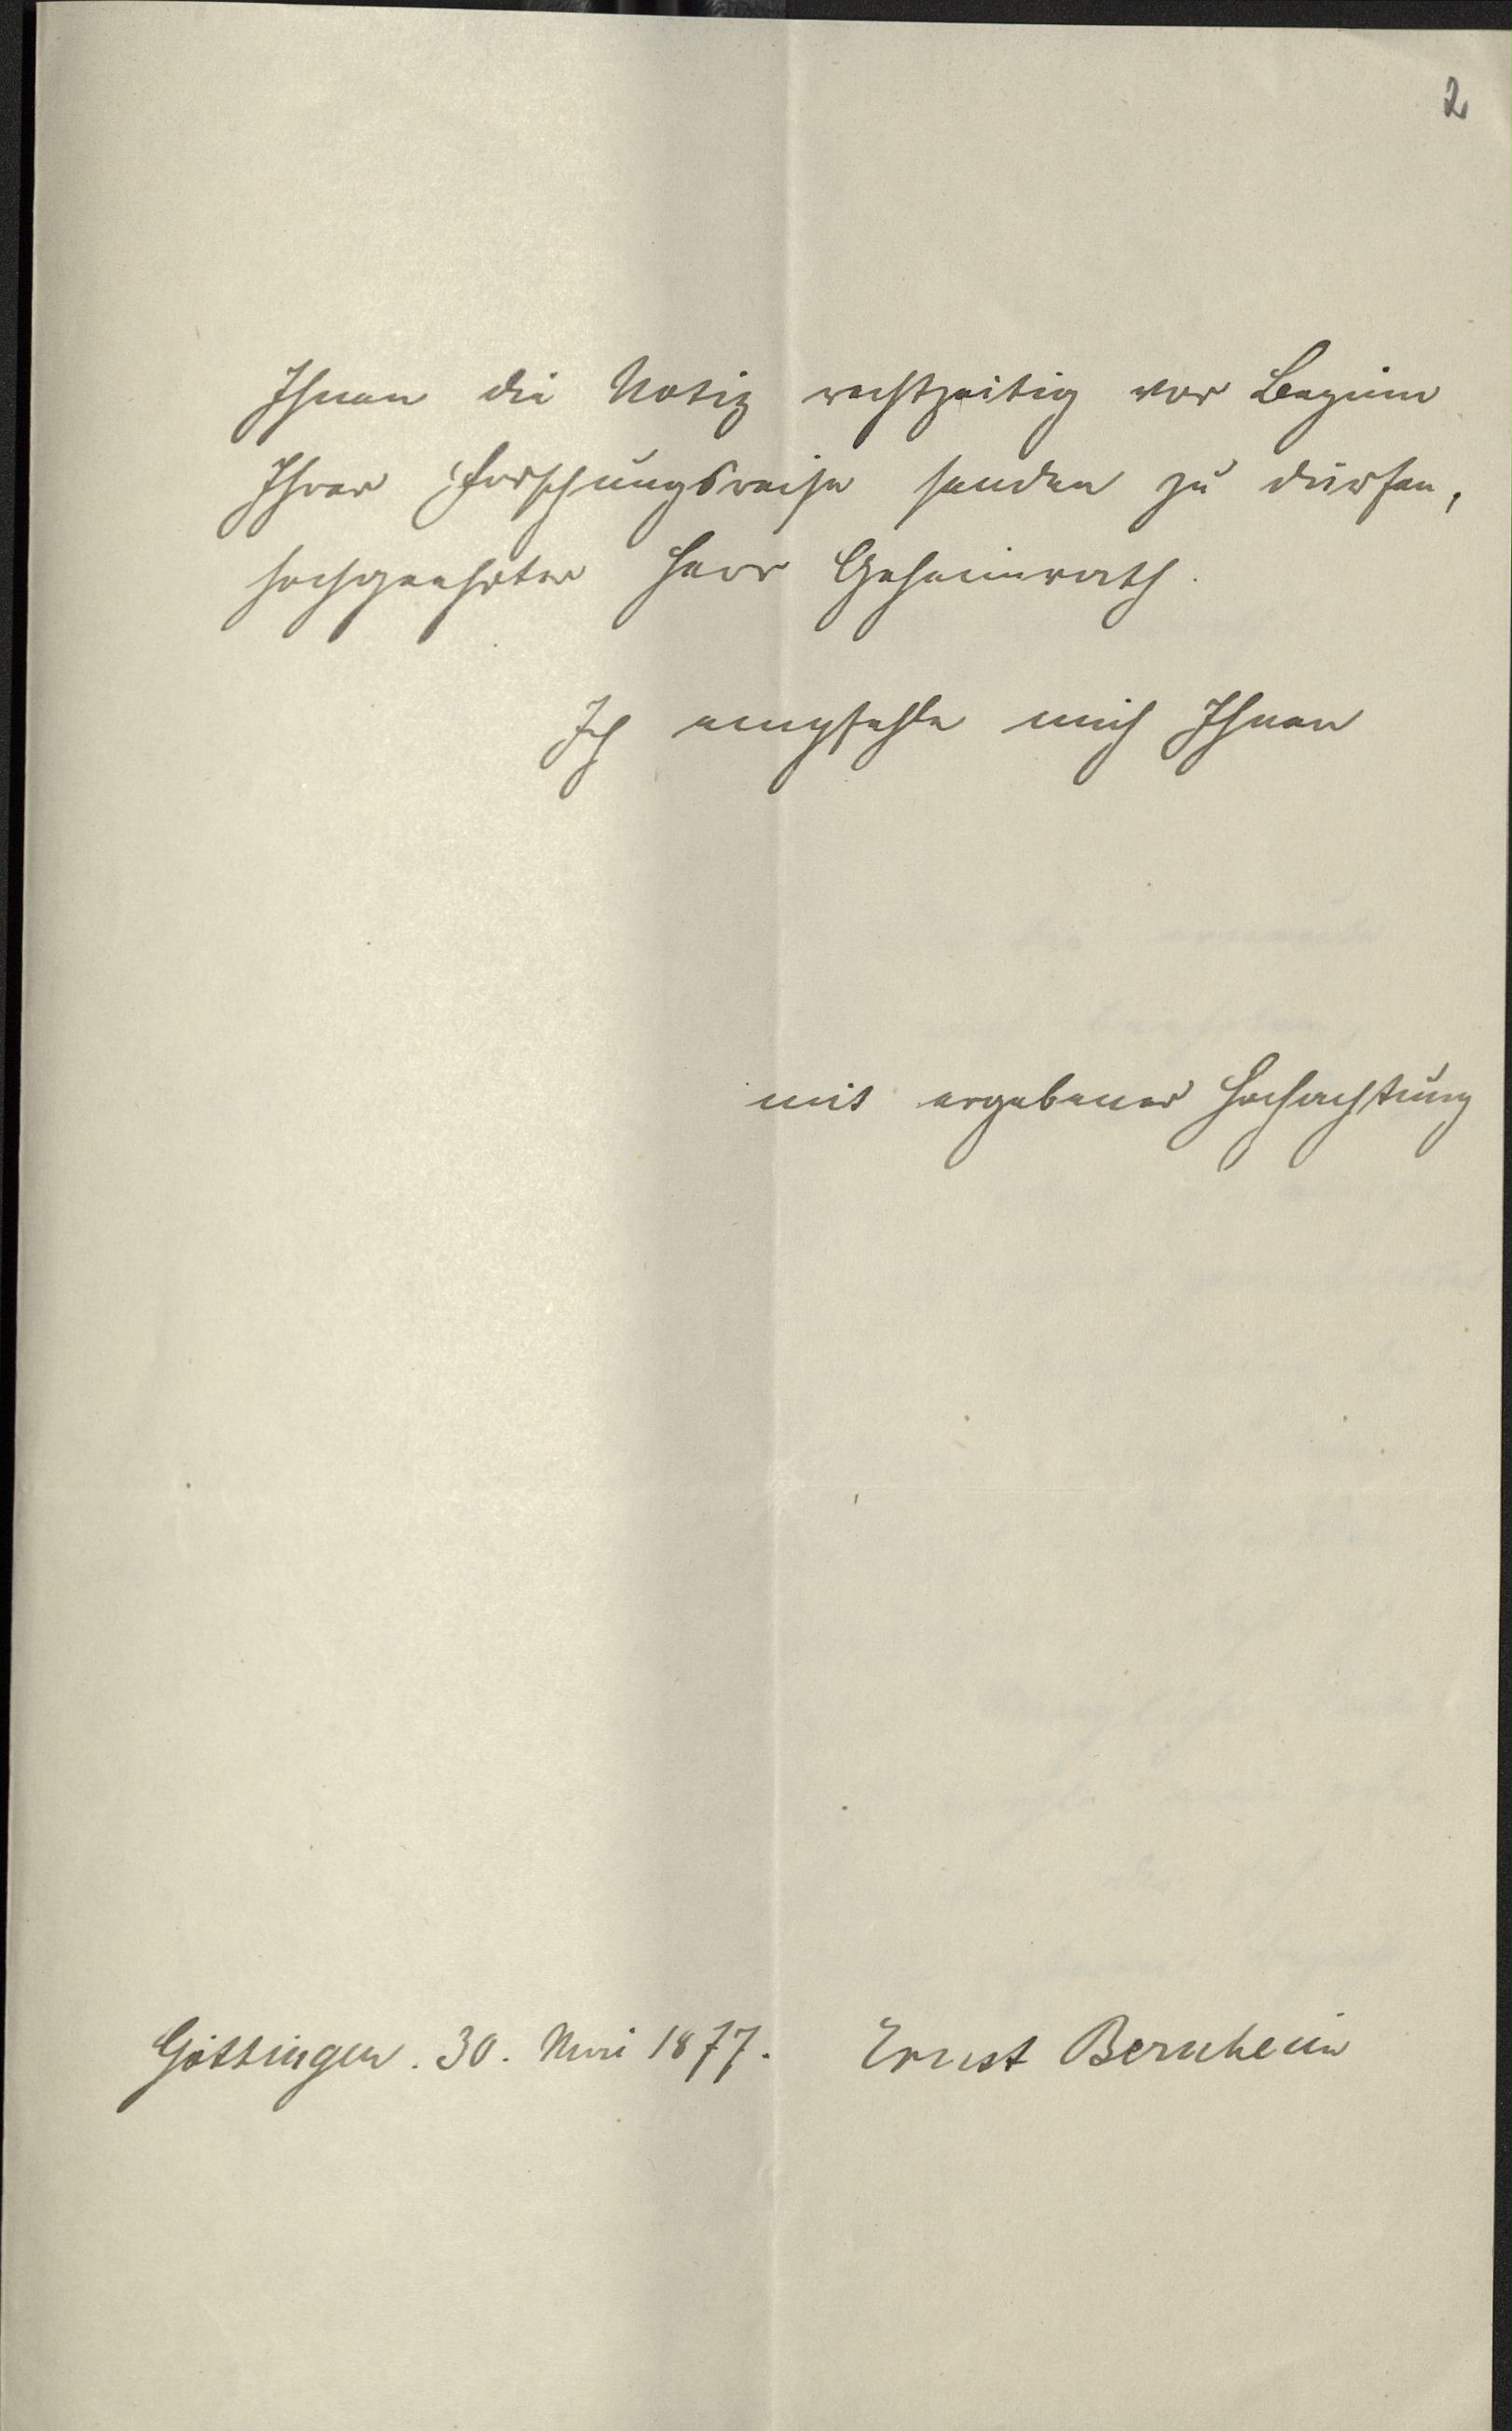 2
Ihnen die Notiz rechtzeitig vor Beginn
Ihrer Forschungsreise senden zu dürfen,
hochgeehrter Herr Geheimrath.
Ich empfehle mich Ihnen
mit ergebener Hochachtung
Göttingen. 30. Mai 1877. Ernst Bernheim